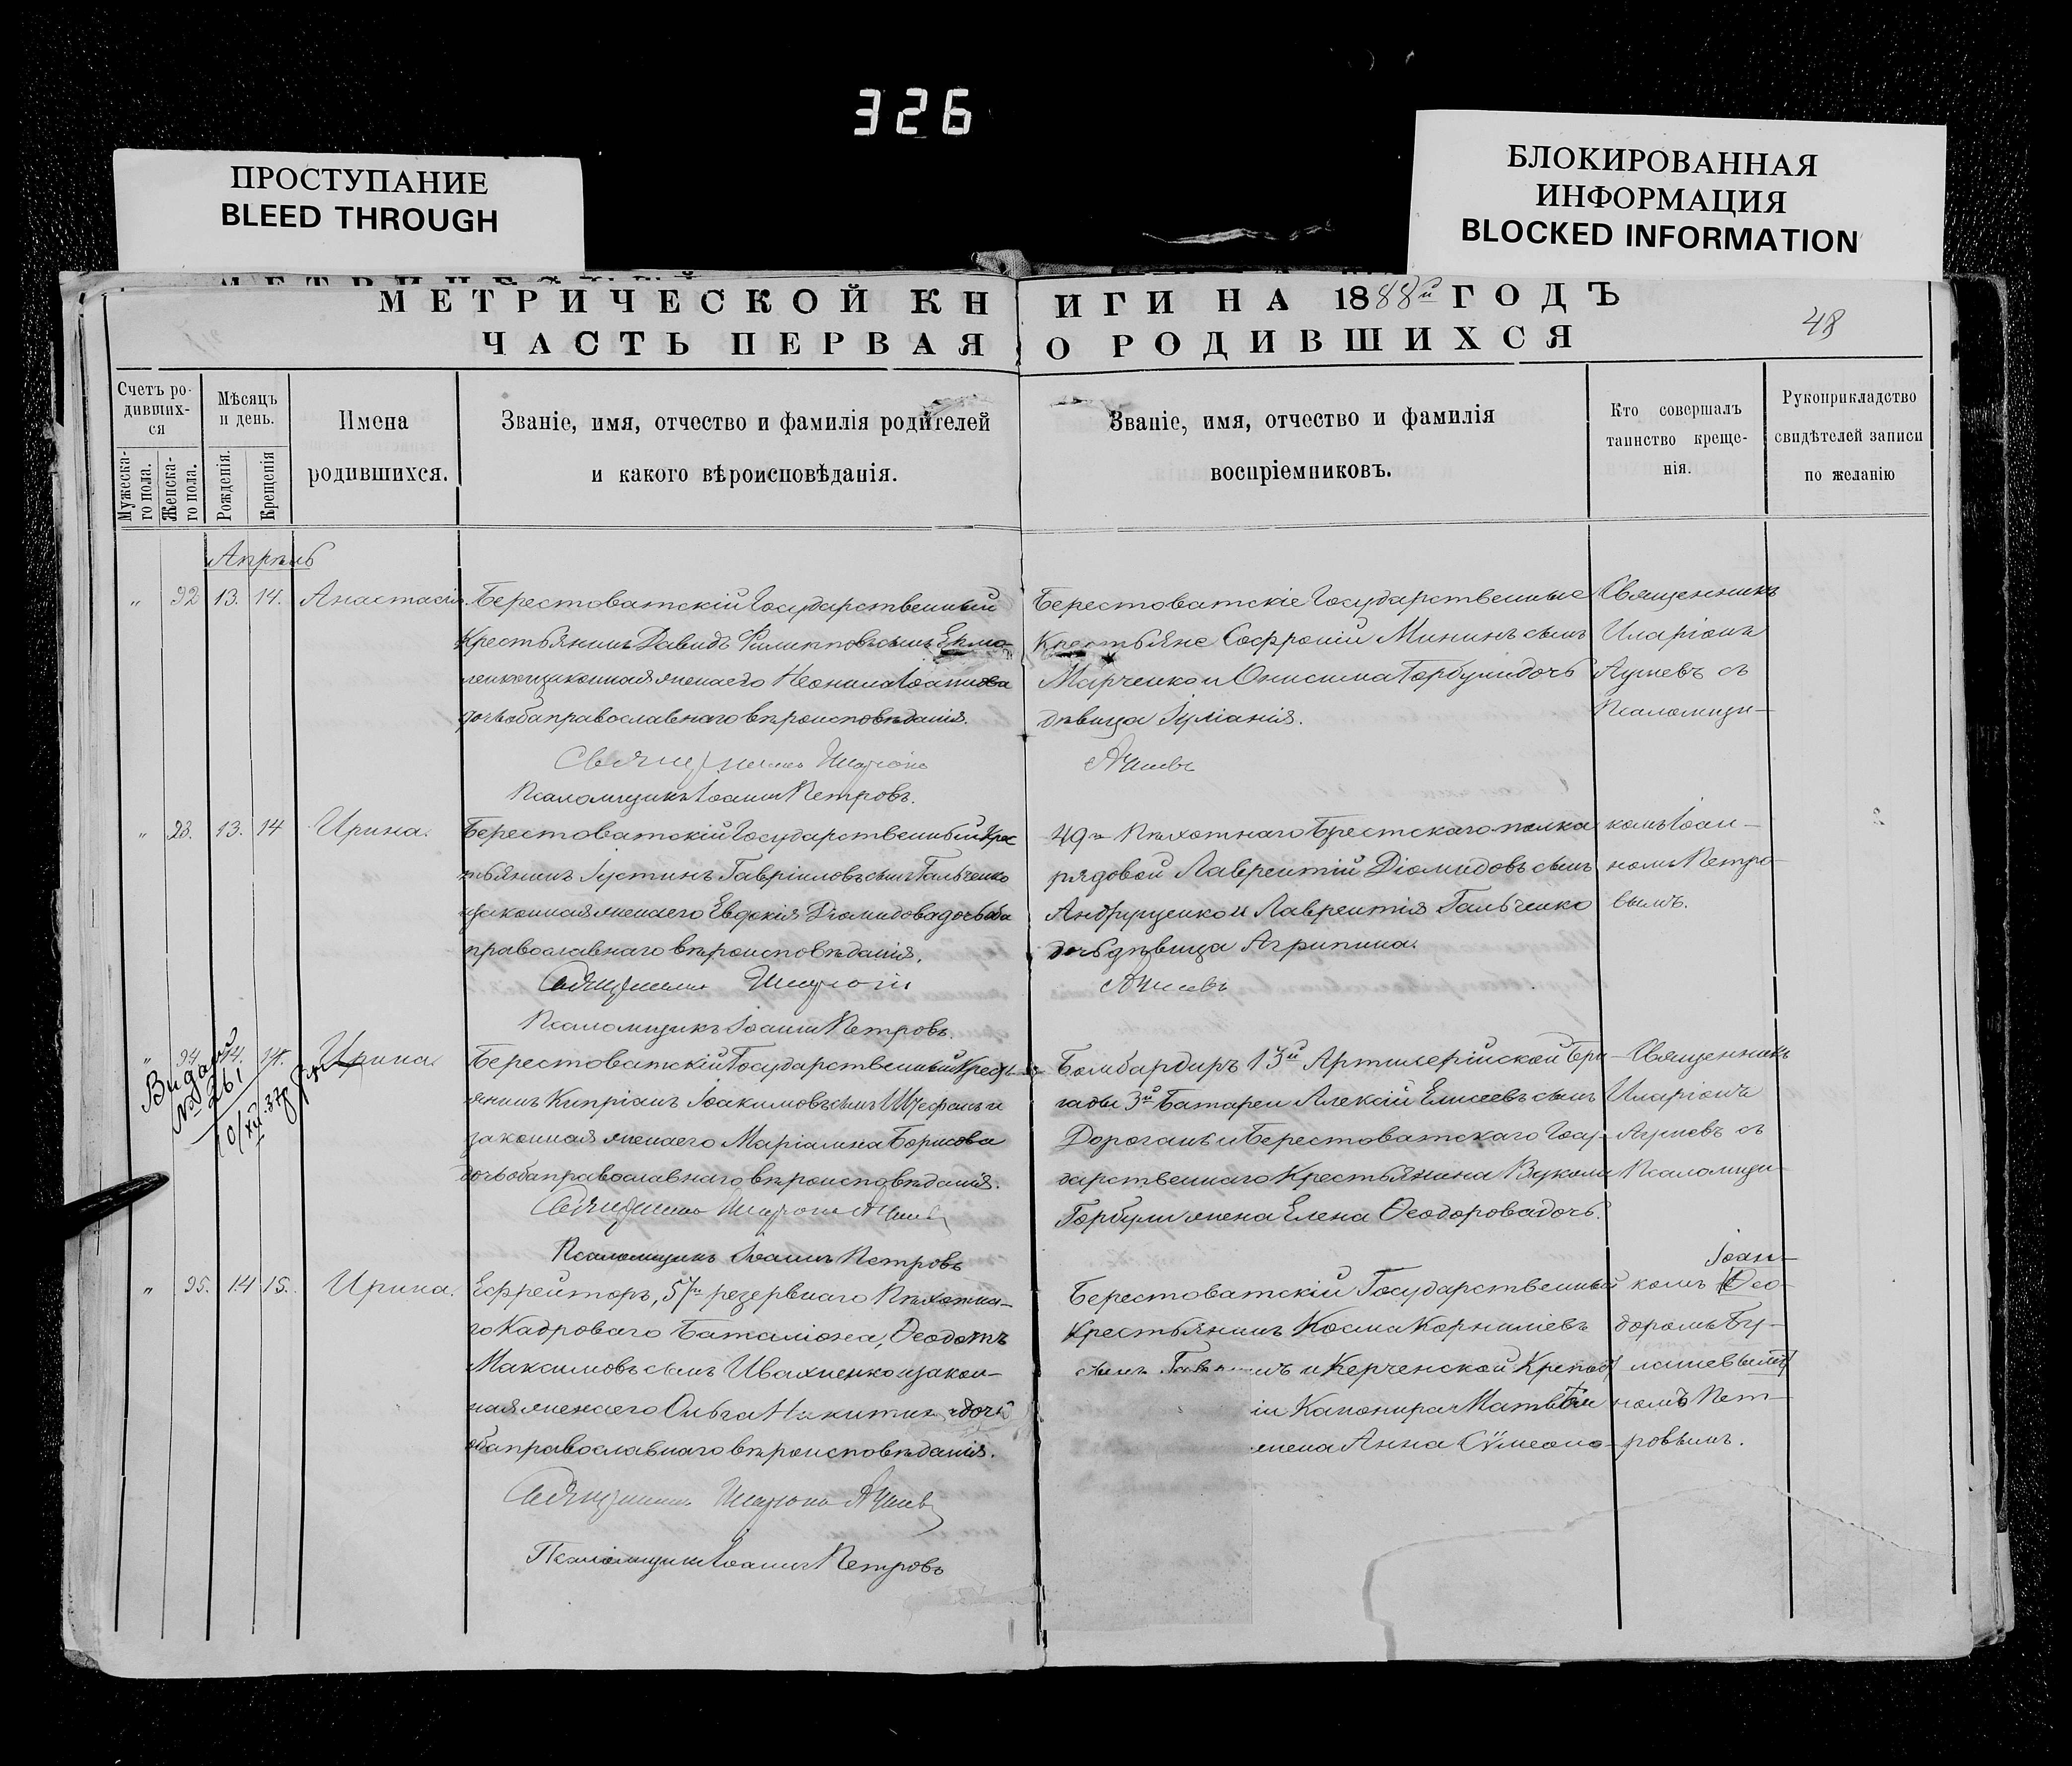 326
ПРОСТУПАНИЕ
BLEED THROUGH
БЛОКИРОВАННАЯ
ИНФОРМАЦИЯ
BLOCKED INFORMATION
МЕТРИЧЕСКОЙ КНИГИ НА 1888й ГОДЪ
ЧАСТЬ ПЕРВАЯ О РОДИВШИХСЯ
48
Счетъ ро-
дивших-
ся
Мужеска-
го пола.
Женска-
го пола.
Мѣсяцъ
и день.
Рожденія.
Крещенія
Имена
родившихся.
Званіе, имя, отчество и фамилія родителей
и какого вѣроисповѣданія.
Званіе, имя, отчество и фамилія
воспріемниковъ.
Кто совершалъ
таинство креще-
нія.
Рукоприкладство
свидѣтелей записи
по желанію
Апрѣль
" 92 13. 14. Анастасія.
Берестоватскій Государственный
Крестьянинъ Давидъ Филипповъ сынъ
и законная жена его Неонила Іоаннова
дочь оба православнаго вѣроисповѣданія.
Священникъ Иларіонъ
Псаломщикъ Іоаннъ Петровъ.
Берестоватскіе Государственные
Крестьяне Софроній Мининъ сынъ
Марченко и Онисима Горбули дочь
дѣвица Іуліанія.
Священникъ
Иларіонъ
съ
Псаломщи-
" 93. 13. 14 Ирина.
Берестоватскій Государственный Крес
тьянинъ Іустинъ Гавріиловъ сынъ Гальченко
и законная жена его Евдокія Діомидова дочь оба
православнаго вѣроисповѣданія.
Священникъ Иларіонъ
Псаломщикъ Іоаннъ Петровъ.
49го Пѣхотнаго Брестскаго полка
рядовой Лаврентій Діомидовъ сынъ
Андрущенко и Лаврентія Гальченко
дочь дѣвица Агрипина.
комъ Іоан-
номъ Петро-
вымъ.
" 94 14. 14. Ирина.
Видано
№ 261
10/XII.37р
Берестоватскій Государственный Кресть-
янинъ Кипріанъ Іоакимовъ сынъ и
законная жена его Маріамна Борисова
дочь оба православнаго вѣроисповѣданія.
Священникъ Иларіонъ
Псаломщикъ Іоаннъ Петровъ
Бомбардиръ 13й Артилерійской Бри-
гады 3й Батареи Алексій Елисеевъ сынъ
Дороганъ и Берестоватскаго Госу-
дарственнаго Крестьянина Вукола
Горбули жена Елена Ѳеодорова дочь.
Священникъ
Иларіонъ
съ
Псаломщи-
" 95. 14 15. Ирина.
Ефрейторъ, 57го резервнаго Пѣхотна-
го Кадроваго Баталіона, Ѳеодотъ
Максимовъ сынъ Ивахненко и закон-
ная жена его Ольга дочь
оба православнаго вѣроисповѣданія.
Священникъ Иларіонъ
Псаломщикъ Іоаннъ Петровъ
Берестоватскій Государственный
Крестьянинъ Косма Корниліевъ
сынъ и Керченской
Капонира
жена Анна Сѵмеоно-
Іоан-
комъ Ѳео-
доромъ
номъ Пет-
ровымъ.